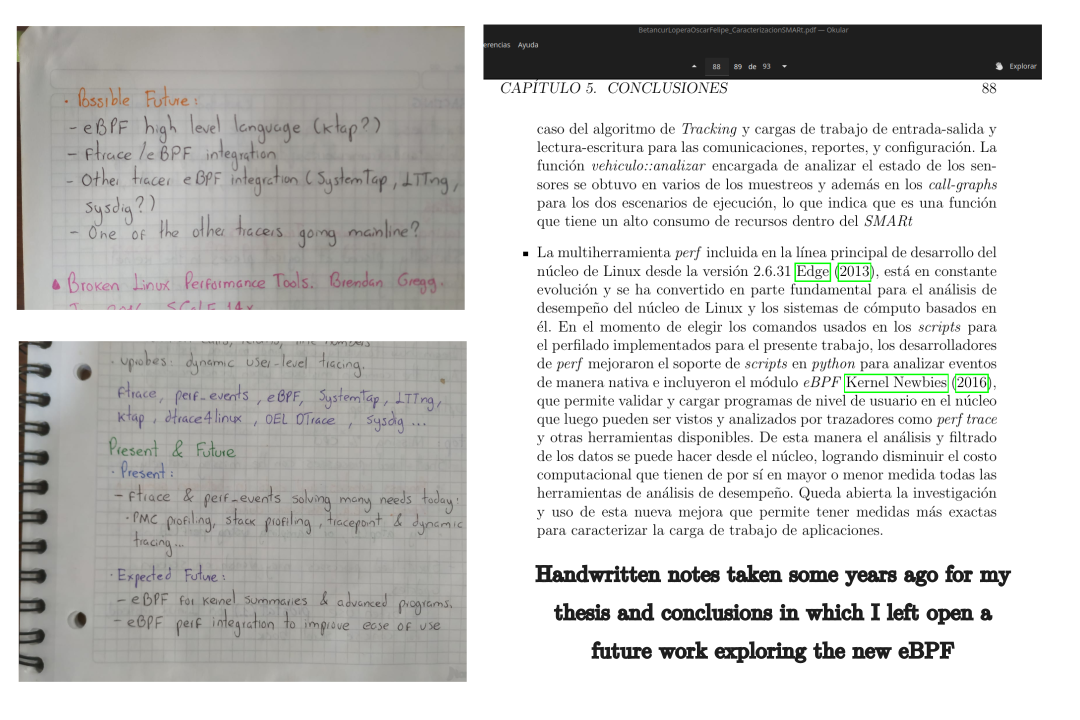 · Possible Future:
- eBPF high level language (ktap?)
- Ftrace/eBPF integration
- Other tracer eBPF integration (SystemTap, LTTng,
sysdig?)
- One of the other tracers going mainline?
Broken Linux Performance Tools. Brendan Gregg.
SCaLE 14x
numbers
· uprobes: dynamic user-level tracing.
ftrace, perf_events, eBPF, SystemTap, LTTng,
ktap, dtrace4linux, OEL DTrace, sysdig ...
Present & Future
· Present:
- Ftrace & perf_events solving many needs today:
· PMC profiling, stack profiling, tracepoint & dynamic
tracing...
· Expected Future:
- eBPF for kernel summaries & advanced programs.
- eBPF perf integration to improve ease of use
BetancurLoperaOscarFelipe_CaracterizacionSMARt.pdf — Okular
erencias Ayuda
88 89 de 93 Explorar
CAPÍTULO 5. CONCLUSIONES 88
caso del algoritmo de Tracking y cargas de trabajo de entrada-salida y
lectura-escritura para las comunicaciones, reportes, y configuración. La
función vehiculo::analizar encargada de analizar el estado de los sen-
sores se obtuvo en varios de los muestreos y además en los call-graphs
para los dos escenarios de ejecución, lo que indica que es una función
que tiene un alto consumo de recursos dentro del SMARt
▪ La multiherramienta perf incluida en la línea principal de desarrollo del
núcleo de Linux desde la versión 2.6.31 Edge (2013), está en constante
evolución y se ha convertido en parte fundamental para el análisis de
desempeño del núcleo de Linux y los sistemas de cómputo basados en
él. En el momento de elegir los comandos usados en los scripts para
el perfilado implementados para el presente trabajo, los desarrolladores
de perf mejoraron el soporte de scripts en python para analizar eventos
de manera nativa e incluyeron el módulo eBPF Kernel Newbies (2016),
que permite validar y cargar programas de nivel de usuario en el núcleo
que luego pueden ser vistos y analizados por trazadores como perf trace
y otras herramientas disponibles. De esta manera el análisis y filtrado
de los datos se puede hacer desde el núcleo, logrando disminuir el costo
computacional que tienen de por sí en mayor o menor medida todas las
herramientas de análisis de desempeño. Queda abierta la investigación
y uso de esta nueva mejora que permite tener medidas más exactas
para caracterizar la carga de trabajo de aplicaciones.
Handwritten notes taken some years ago for my
thesis and conclusions in which I left open a
future work exploring the new eBPF